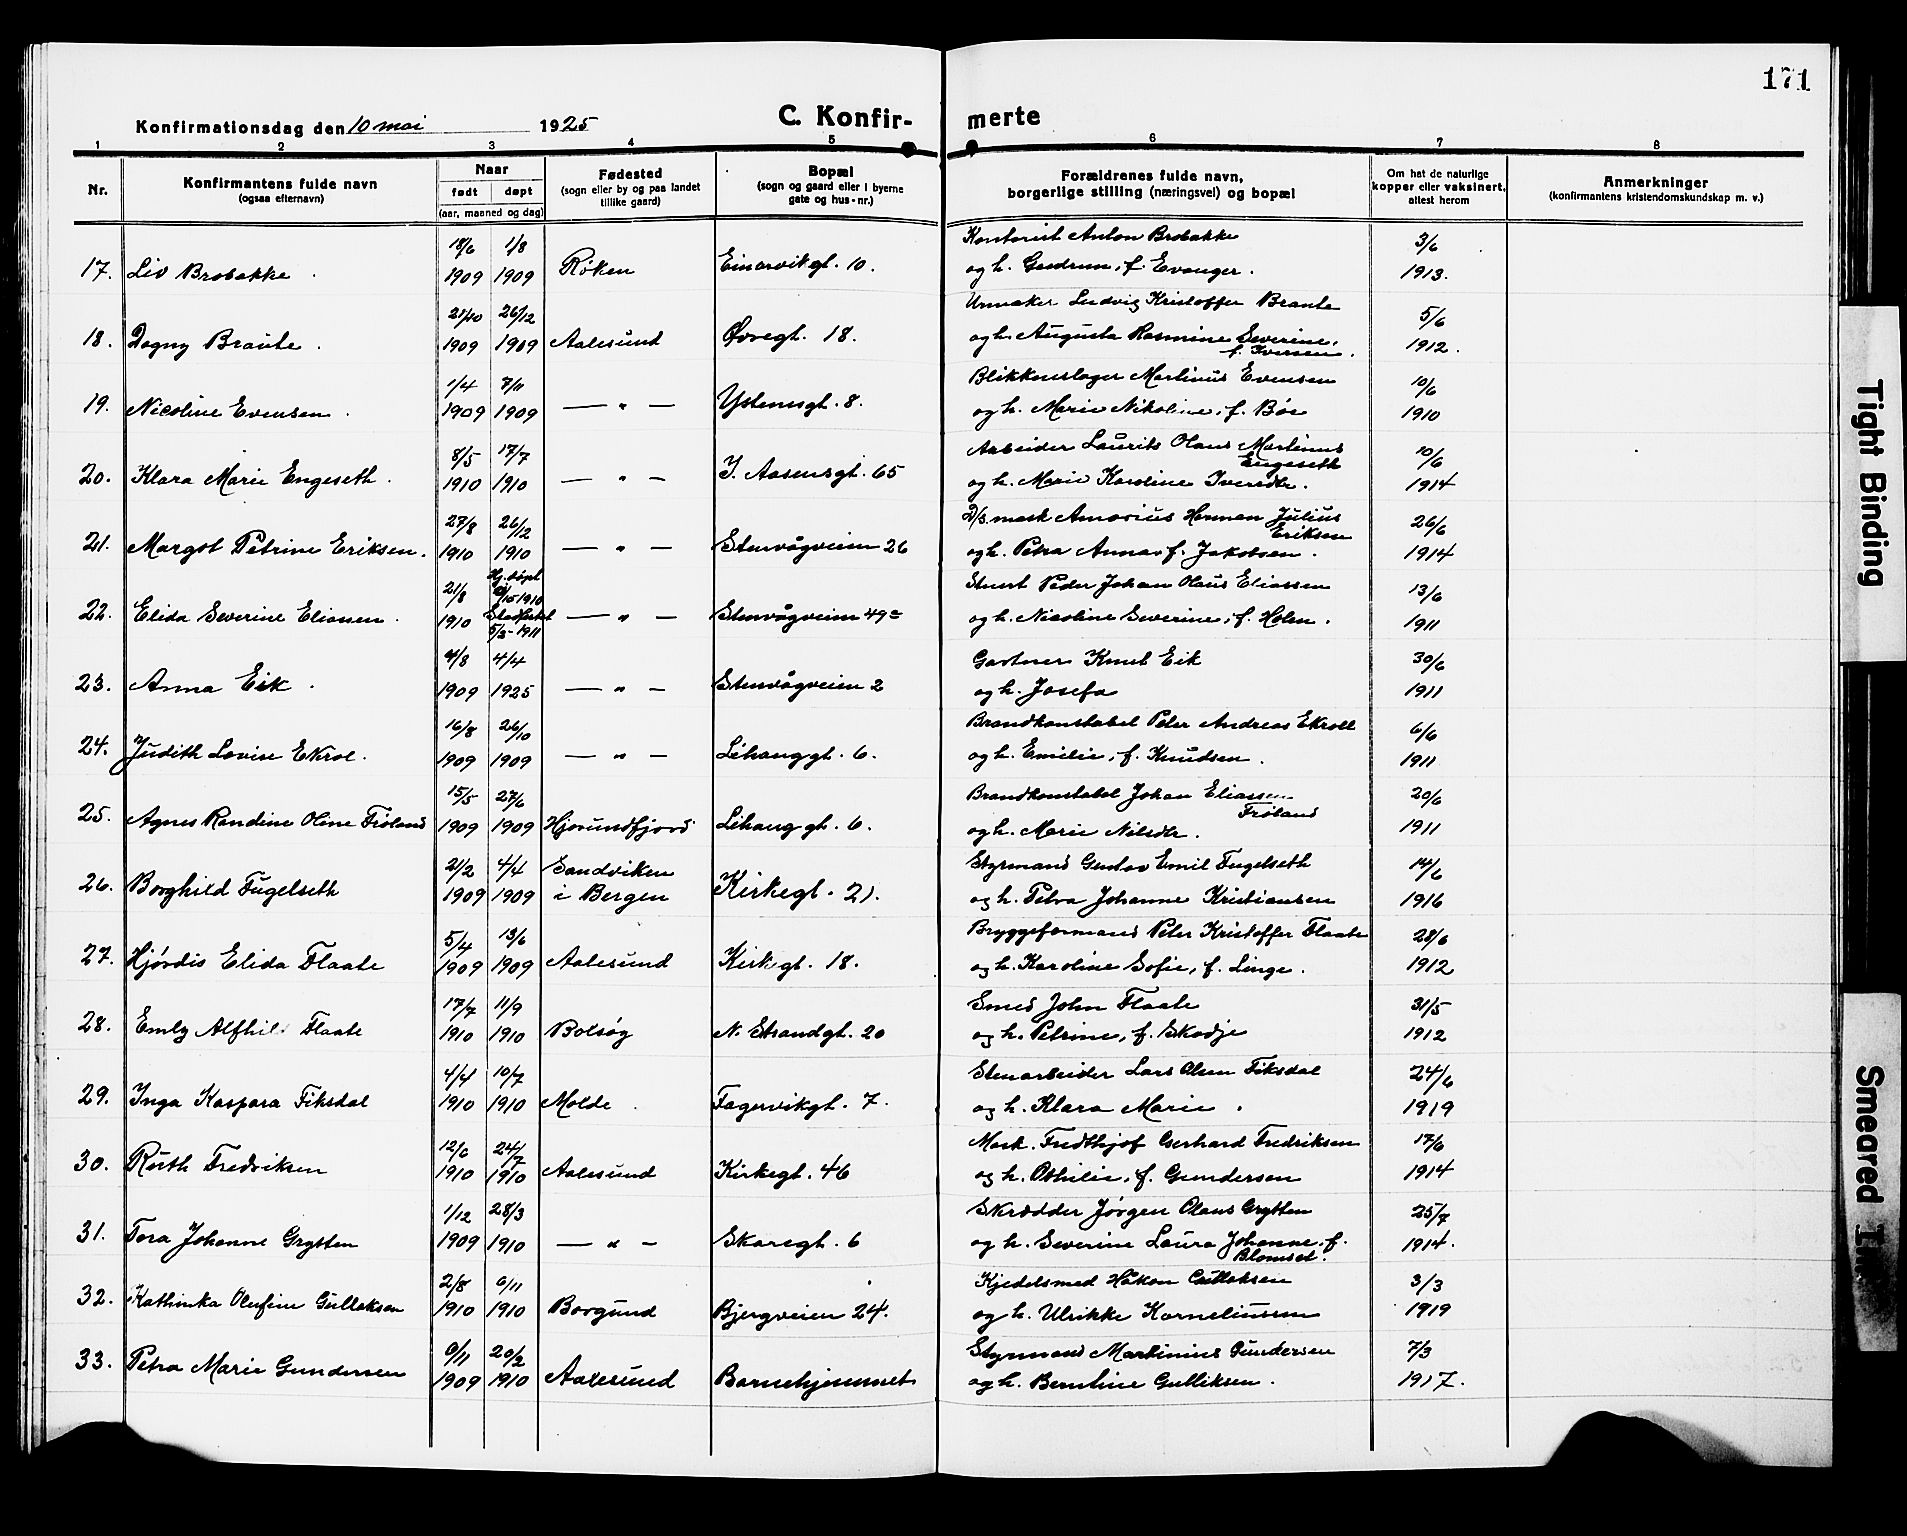 171
Konfirmationsdag den 10 mai 1925
C. Konfir- merte
1 2 3 4 5 6 7 8
Nr.
Konfirmantens fulde navn
(ogsaa efternavn)
Naar
født døpt
(aar, maaned og dag)
Fødested
(sogn eller by og paa landet
tillike gaard)
Bopæl
(sogn og gaard eller i byerne
gate og hus-nr.)
Forældrenes fulde navn,
borgerlige stilling (næringsvei) og bopæl
Om hat de naturlige
kopper eller vaksinert,
attest herom
Anmerkninger
(konfirmantens kristendomskundskap m. v.)
18/6 1/8 Kontorist Anton Brobakke 3/6
17. Liv Brobakke. 1909 1909 Røken Einarvikgt. 10. og h. Gudrun, f. Evanger. 1913.
21/10 26/12 Urmaker Ludvig Kristoffer Braute 5/6
18. Dagny Braute. 1909 1909 Aalesund Øvregt. 18. og h. Augusta Rasmine Severine, 1912.
f. Iversen.
1/4 7/11 Blikkenslager Martinus Evensen 10/6
19. Nicoline Evensen. 1909 1909 — " — Ystenesgt. 8. og h. Marie Nikoline, f. Bøe 1910
8/5 17/7 Arbeider Laurits Olaus Martinus 10/6
Engeseth
20. Klara Marie Engeseth. 1910 1910 — " — I. Aasensgt. 65 og h. Marie Karoline Iversdtr. 1914
27/8 26/12 D/S. mask Amorius Herman Julius 26/6
Eriksen
21. Margot Petrine Eriksen. 1910 1910 — " — Stenvågveien 26 og h. Petra Anna f. Jakobsen. 1914
21/8 Hj. døpt Stuert Peder Johan Olaus Eliassen 13/6
/10 1910
22. Elida Severine Eliassen. 1910 Stadfestet — " — Stenvågveien 49a og h. Nicoline Severine, f. Holm. 1911
5/3-1911
4/8 4/4 Gartner Knut Eik 30/6
23. Anna Eik. 1909 1925 — " — Stenvågveien 2 og h. Josefa 1911
16/8 26/10 Brandkonstabel Peter Andreas Ekroll 6/6
24. Judith Lovise Ekrol. 1909 1909 — " — Lihauggt. 6. og h. Emilie, f. Knudsen. 1911
15/5 27/6 Brandkonstabel Johan Eliassen 20/6
Frøland
25. Agnes Randine Oline Frøland 1909 1909 Hjørundfjord Lihauggt. 6. og h. Marie Nilsdtr. 1911
21/2 4/4 Sandviken Styrmand Gustav Emil Fugelseth 14/6
26. Borghild Fugelseth 1909 1909 i Bergen Kirkegt. 21. og h. Petra Johanne Kristiansen 1916
5/4 13/6 Bryggeformand Peter Kristoffer Flaate 28/6
27. Hjørdis Elida Flaate 1909 1909 Aalesund Kirkegt. 18. og h. Karoline Sofie, f. Linge. 1912
17/7 11/9 Smed John Flaate 31/5
28. Emly Alfhild Flaate 1910 1910 Bolsøy N. Strandgt. 20 og h. Petrine, f. Skodje 1912
4/4 10/7 Stenarbeider Lars Olsen Fiksdal 24/6
29. Inga Kaspara Fiksdal 1910 1910 Molde. Fagervikgt. 7. og h. Klara Marie. 1919
12/6 24/7 Mask. Fridthjof Gerhard Fredriksen 17/6
30. Ruth Fredriksen 1910 1910 Aalesund Kirkegt. 46 og h. Othilie, f. Gundersen 1914
1/12 28/3 Skrædder Jørgen Olaus Grytten 25/7
31. Tora Johanne Grytten 1909 1910 — " — Skaregt. 6 og h. Severine Laura Johanne, f. 1914.
Blomset.
2/8 6/11 Kjedelsmed Håkon Gulleksen 3/3
32. Kathinka Olufine Gulleksen 1910 1910 Borgund Bjergveien 24. og h. Ulrikke Korneliussen 1919
6/11 20/2 Styrmand Martinius Gundersen 7/3
33. Petra Marie Gundersen 1909 1910 Aalesund Barnehjemmet og h. Berntine Gulliksen. 1917.
Tight Binding
Smeared